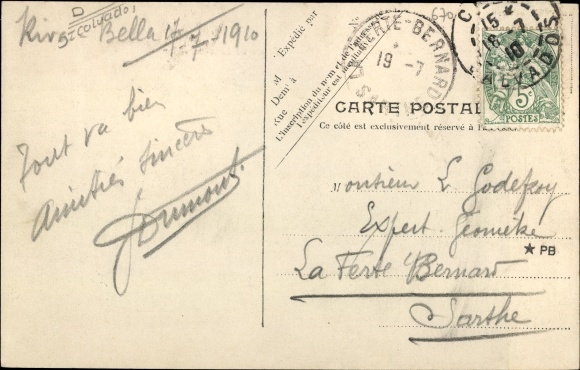 D
5 Calvados
Riva Bella 17-7-1910
Tout va bien
Amitiés sincères
Dumont
Expédié par
M
Demt à
Rue
L'inscription du nom et de l'adresse
l'expéditeur est facultative
LA FERTE-BERNARD
*
19 -7
S
670
C
15 *
18 -7
10
CALVADOS
5c
POSTES
CARTE POSTALE
Ce côté est exclusivement réservé à l'
Monsieur L Godefroy
Expert-Géomètre
★ PB
La Ferté Bernard
Sarthe